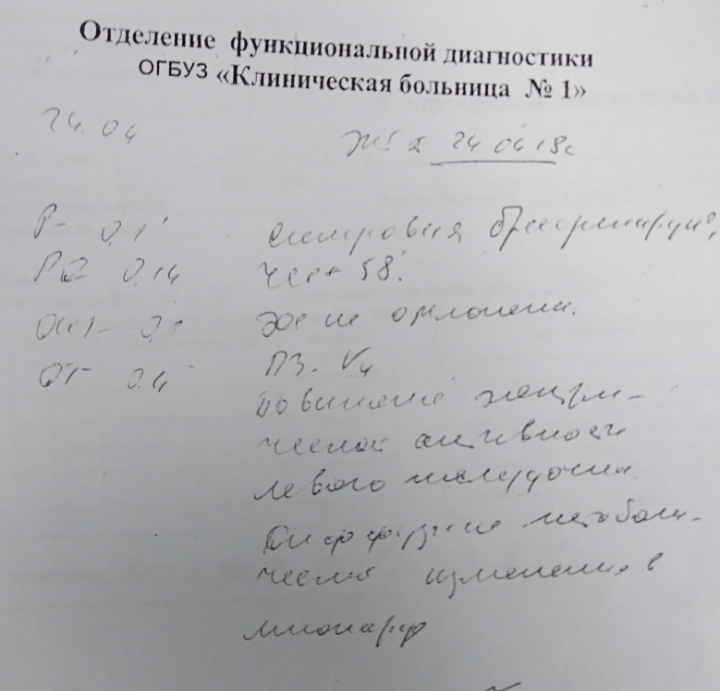 Отделение функциональной диагностики
ОГБУЗ «Клиническая больница № 1»
24.04
24.04.18г
P- 0,1
синусовая брадикардия,
PQ 0.14
чсс 58.
QRS- 0,1
Эос не отклонена.
QT 0.4
ПЗ- V4
Повышение электри-
ческой активности
левого желудочка.
Диффузные метаболи-
ческие изменения в
миокарде